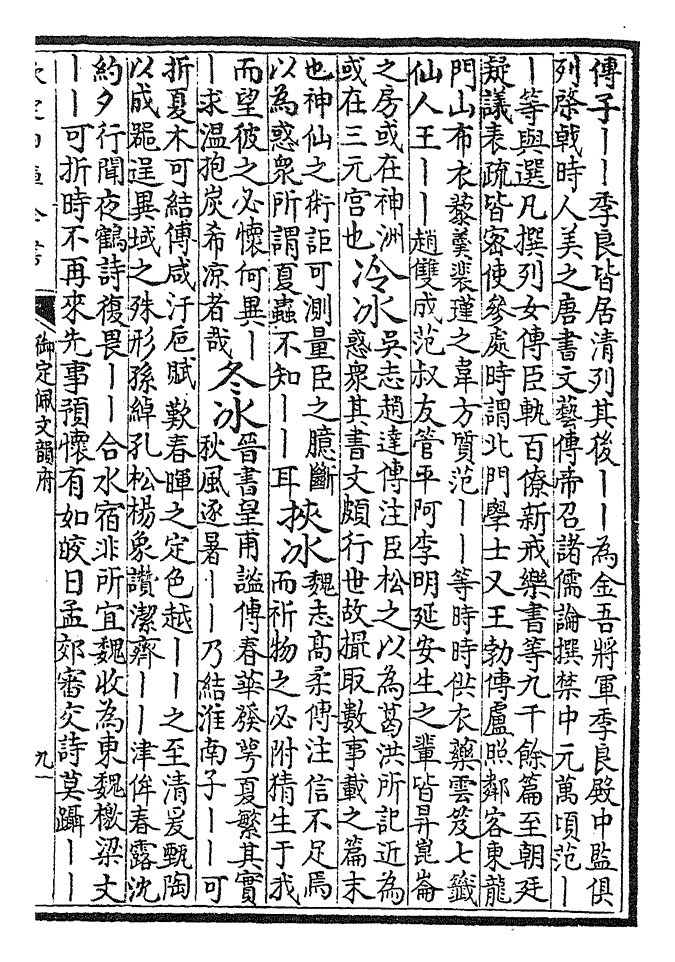 傳子——季良皆居清列其後——為金吾將軍季良殿中監俱
列棨戟時人美之唐書文藝傳帝召諸儒論撰禁中元萬頃范—
—等與選凡撰列女傳臣軌百僚新戒樂書等九千餘篇至朝廷
疑議表疏皆密使參處時謂北門學士又王勃傳盧照鄰客東龍
門山布衣藜羹裴瑾之韋方質范——等時時供衣藥雲笈七籤
仙人王——趙雙成范叔友管平阿李明延安生之輩皆昇崑崙
之房或在神洲
或在三元宮也
冷冰
吳志趙達傳注臣松之以為葛洪所記近為
惑衆其書文頗行世故撮取數事載之篇末
也神仙之術詎可測量臣之臆斷
以為惑衆所謂夏蟲不知——耳
挾冰
魏志高柔傳注信不足焉
而祈物之必附猜生于我
而望彼之必懷何異—
—求溫抱炭希凉者哉
冬冰
晉書皇甫謐傳春華發萼夏繁其實
秋風逐暑——乃結淮南子——可
折夏木可結傅咸汙巵賦歎春暉之定色越——之至清爰甄陶
以成噐逞異域之殊形孫綽孔松楊象讚潔齊——津侔春露沈
約夕行聞夜鶴詩復畏——合水宿非所宜魏收為東魏檄梁文
——可折時不再來先事預懷有如皎日孟郊審交詩莫躡——
欽定四庫全書
御定佩文韻府
九